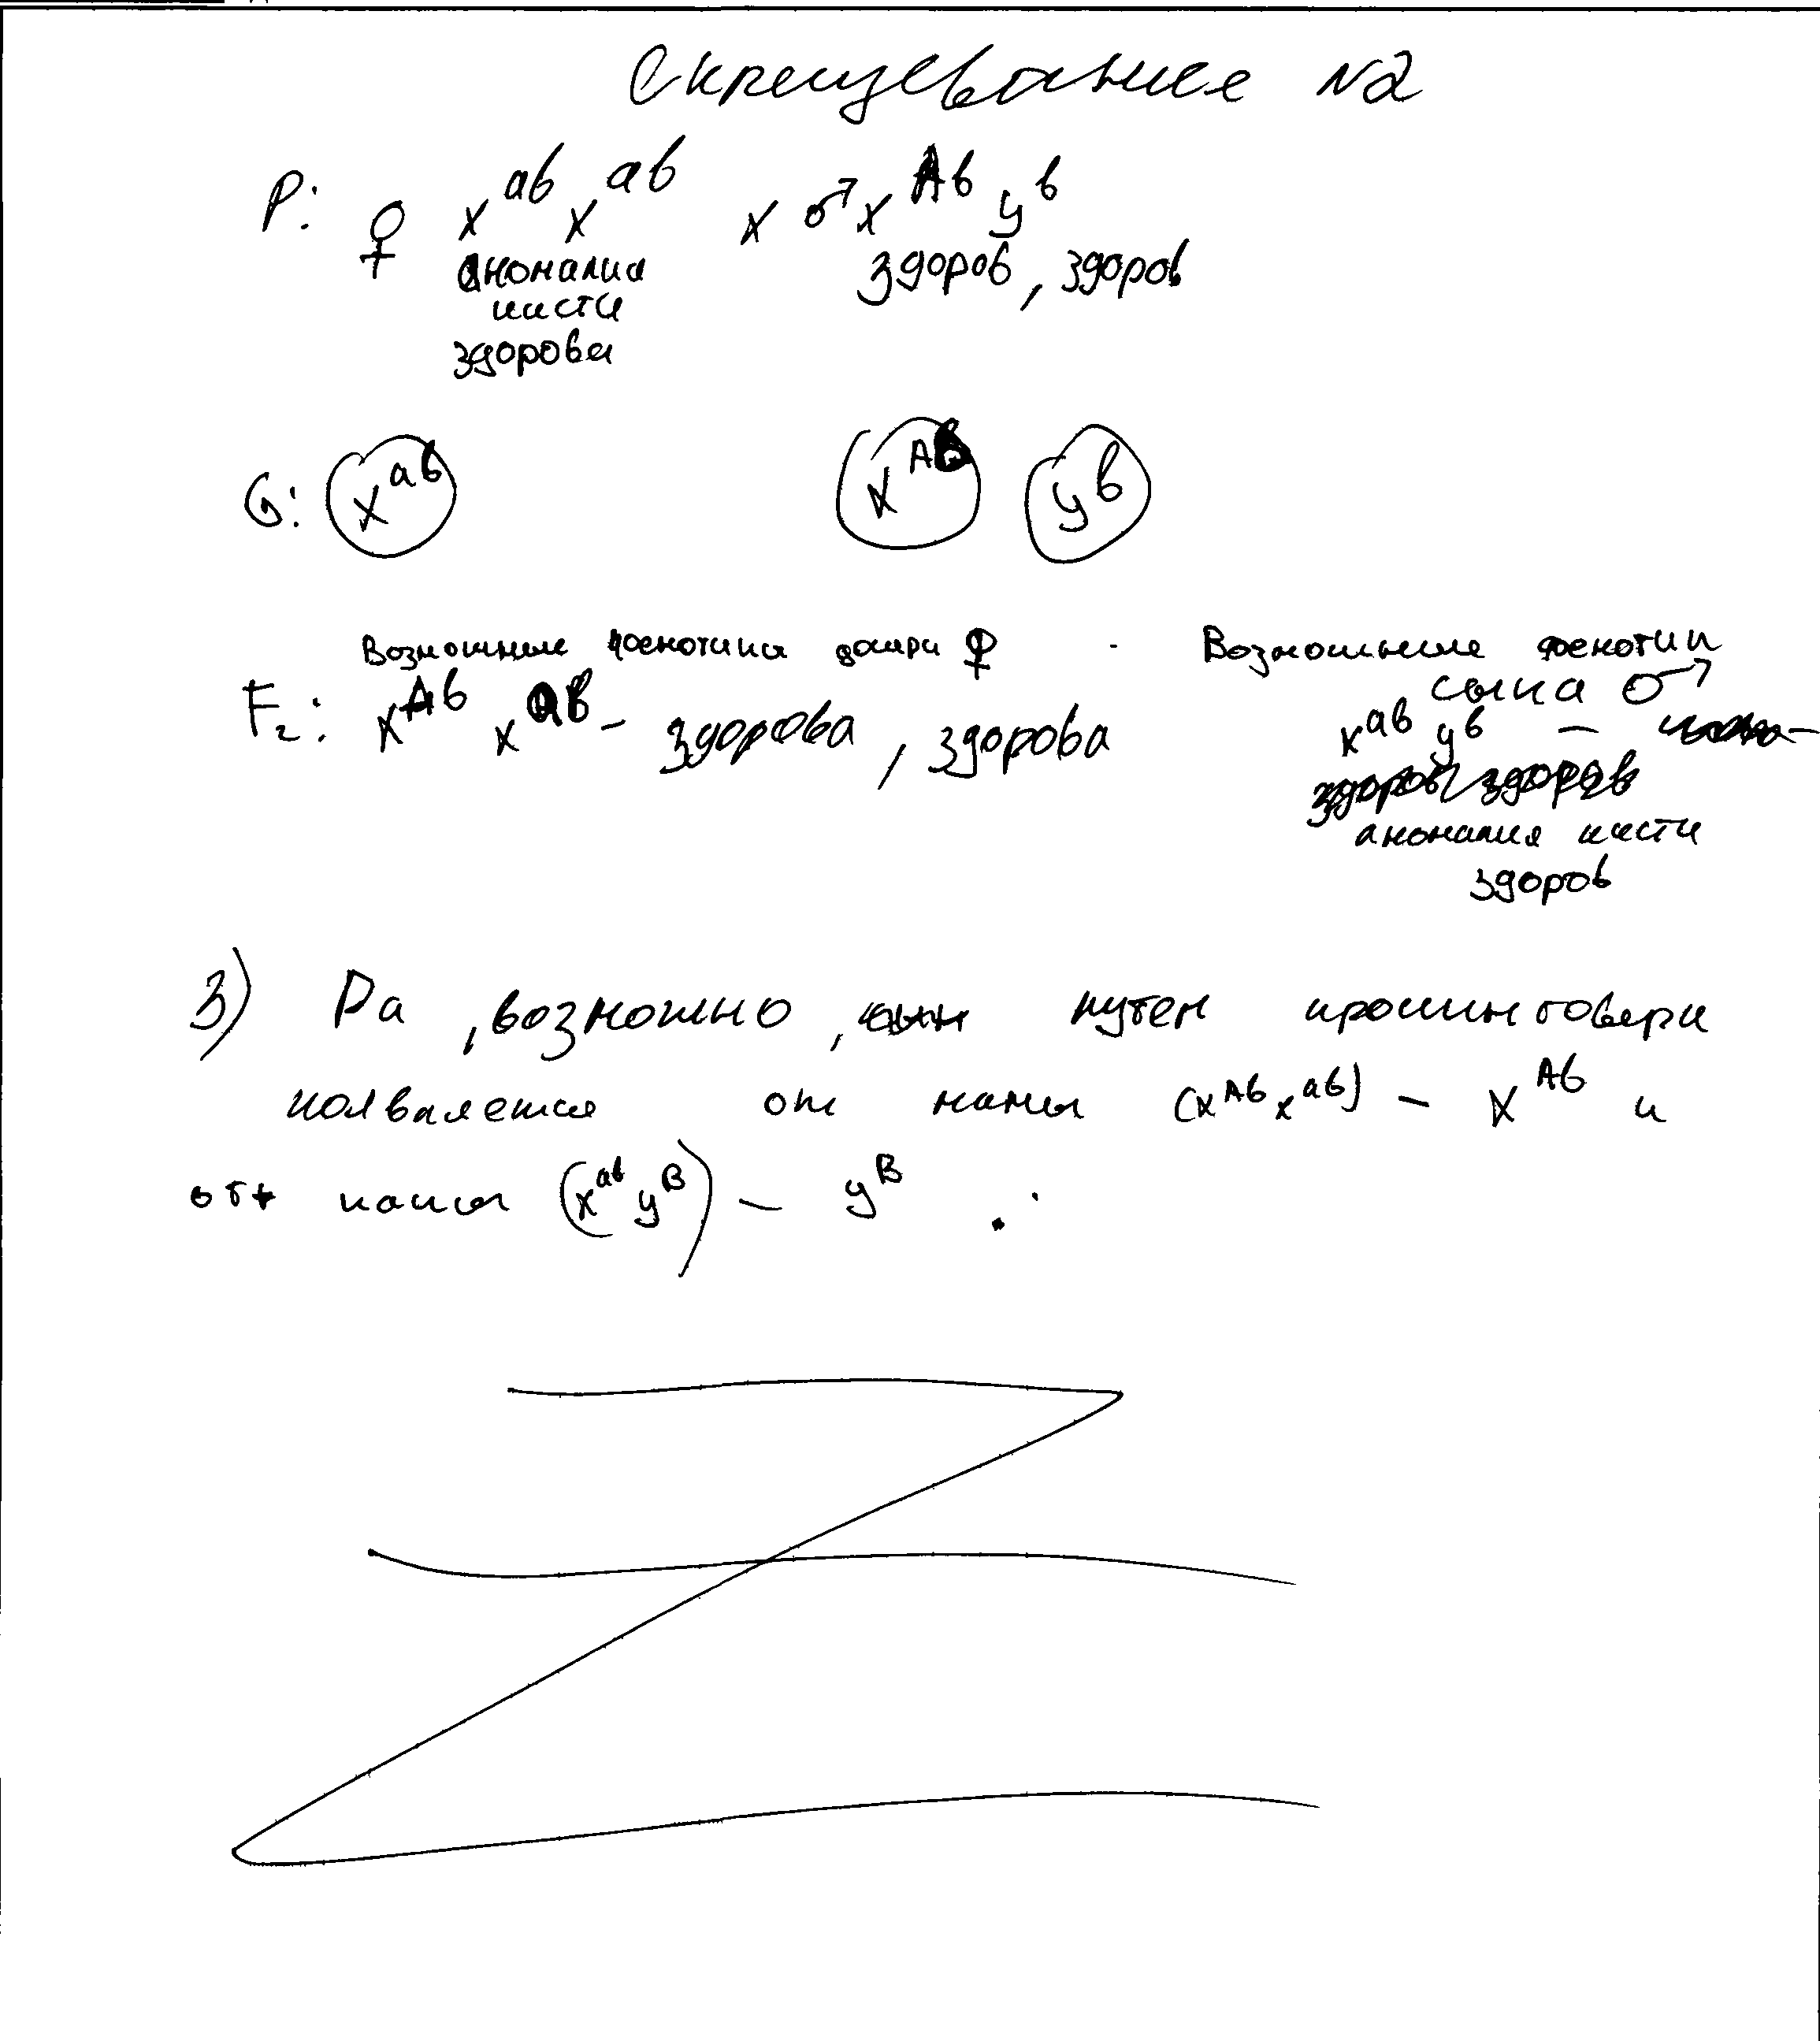 Скрещевание №2
P: ♀ x^ab x^ab x ♂ x^Ab y^b
аномалия здоров, здоров
кисти
здорова
G: x^ab x^Ab y^b
Возможные фенотипы дочери ♀ Возможные фенотип
сына ♂
F₂: x^Ab x^ab – здорова, здорова x^ab y^b –
здоров, здоров
аномалия кисти
здоров
3) Да, возможно, путем кроссинговера
появляется от мамы (x^Ab x^ab) – x^Ab и
от папы (x^ab y^B) – y^B.